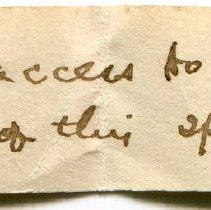 access to
of this sp